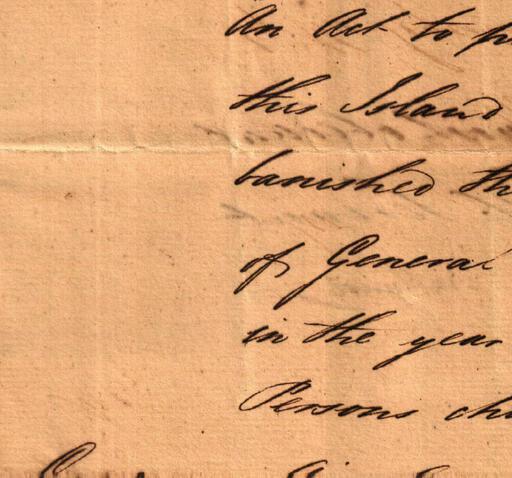 An Act to
this Island
banished
of General
in the year
Persons